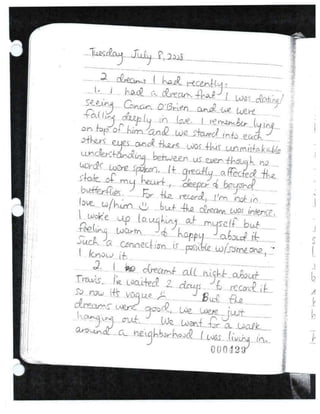 Tuesday July 8, 2008
2 dreams I had recently:
1. I had a dream that I was dating/
seeing Conan O'Brien and we were
falling deeply in love. I remember lying
on top of him and we stared into each
others eyes and there was this unmistakable
understanding between us even though no
words were spoken. It greatly affected the
state of my heart, deeper & beyond
butterflies. For the record, I'm not in
love w/him but the dream was intense.
I woke up laughing at myself but
feeling warm & happy about it
Such a connection is posible w/someone,
I know it.
2. I dreamt all night about
Travis. I've waited 2 days to record it
so now it's vague But the
dreams were good, we were just
hanging out. We went for a walk
around a neighborhood I was living in.
000429